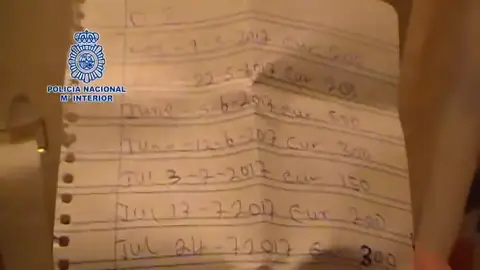 POLICÍA NACIONAL
Mº INTERIOR
2017 Eur
22-5-2017 Eur 200
Juno -6-2017 Eur 500
Juno -12-6-2017 Eur 300
Jul 3-7-2017 Eur 150
Jul 17-7-2017 Eur 200
Jul 24-7-2017 300